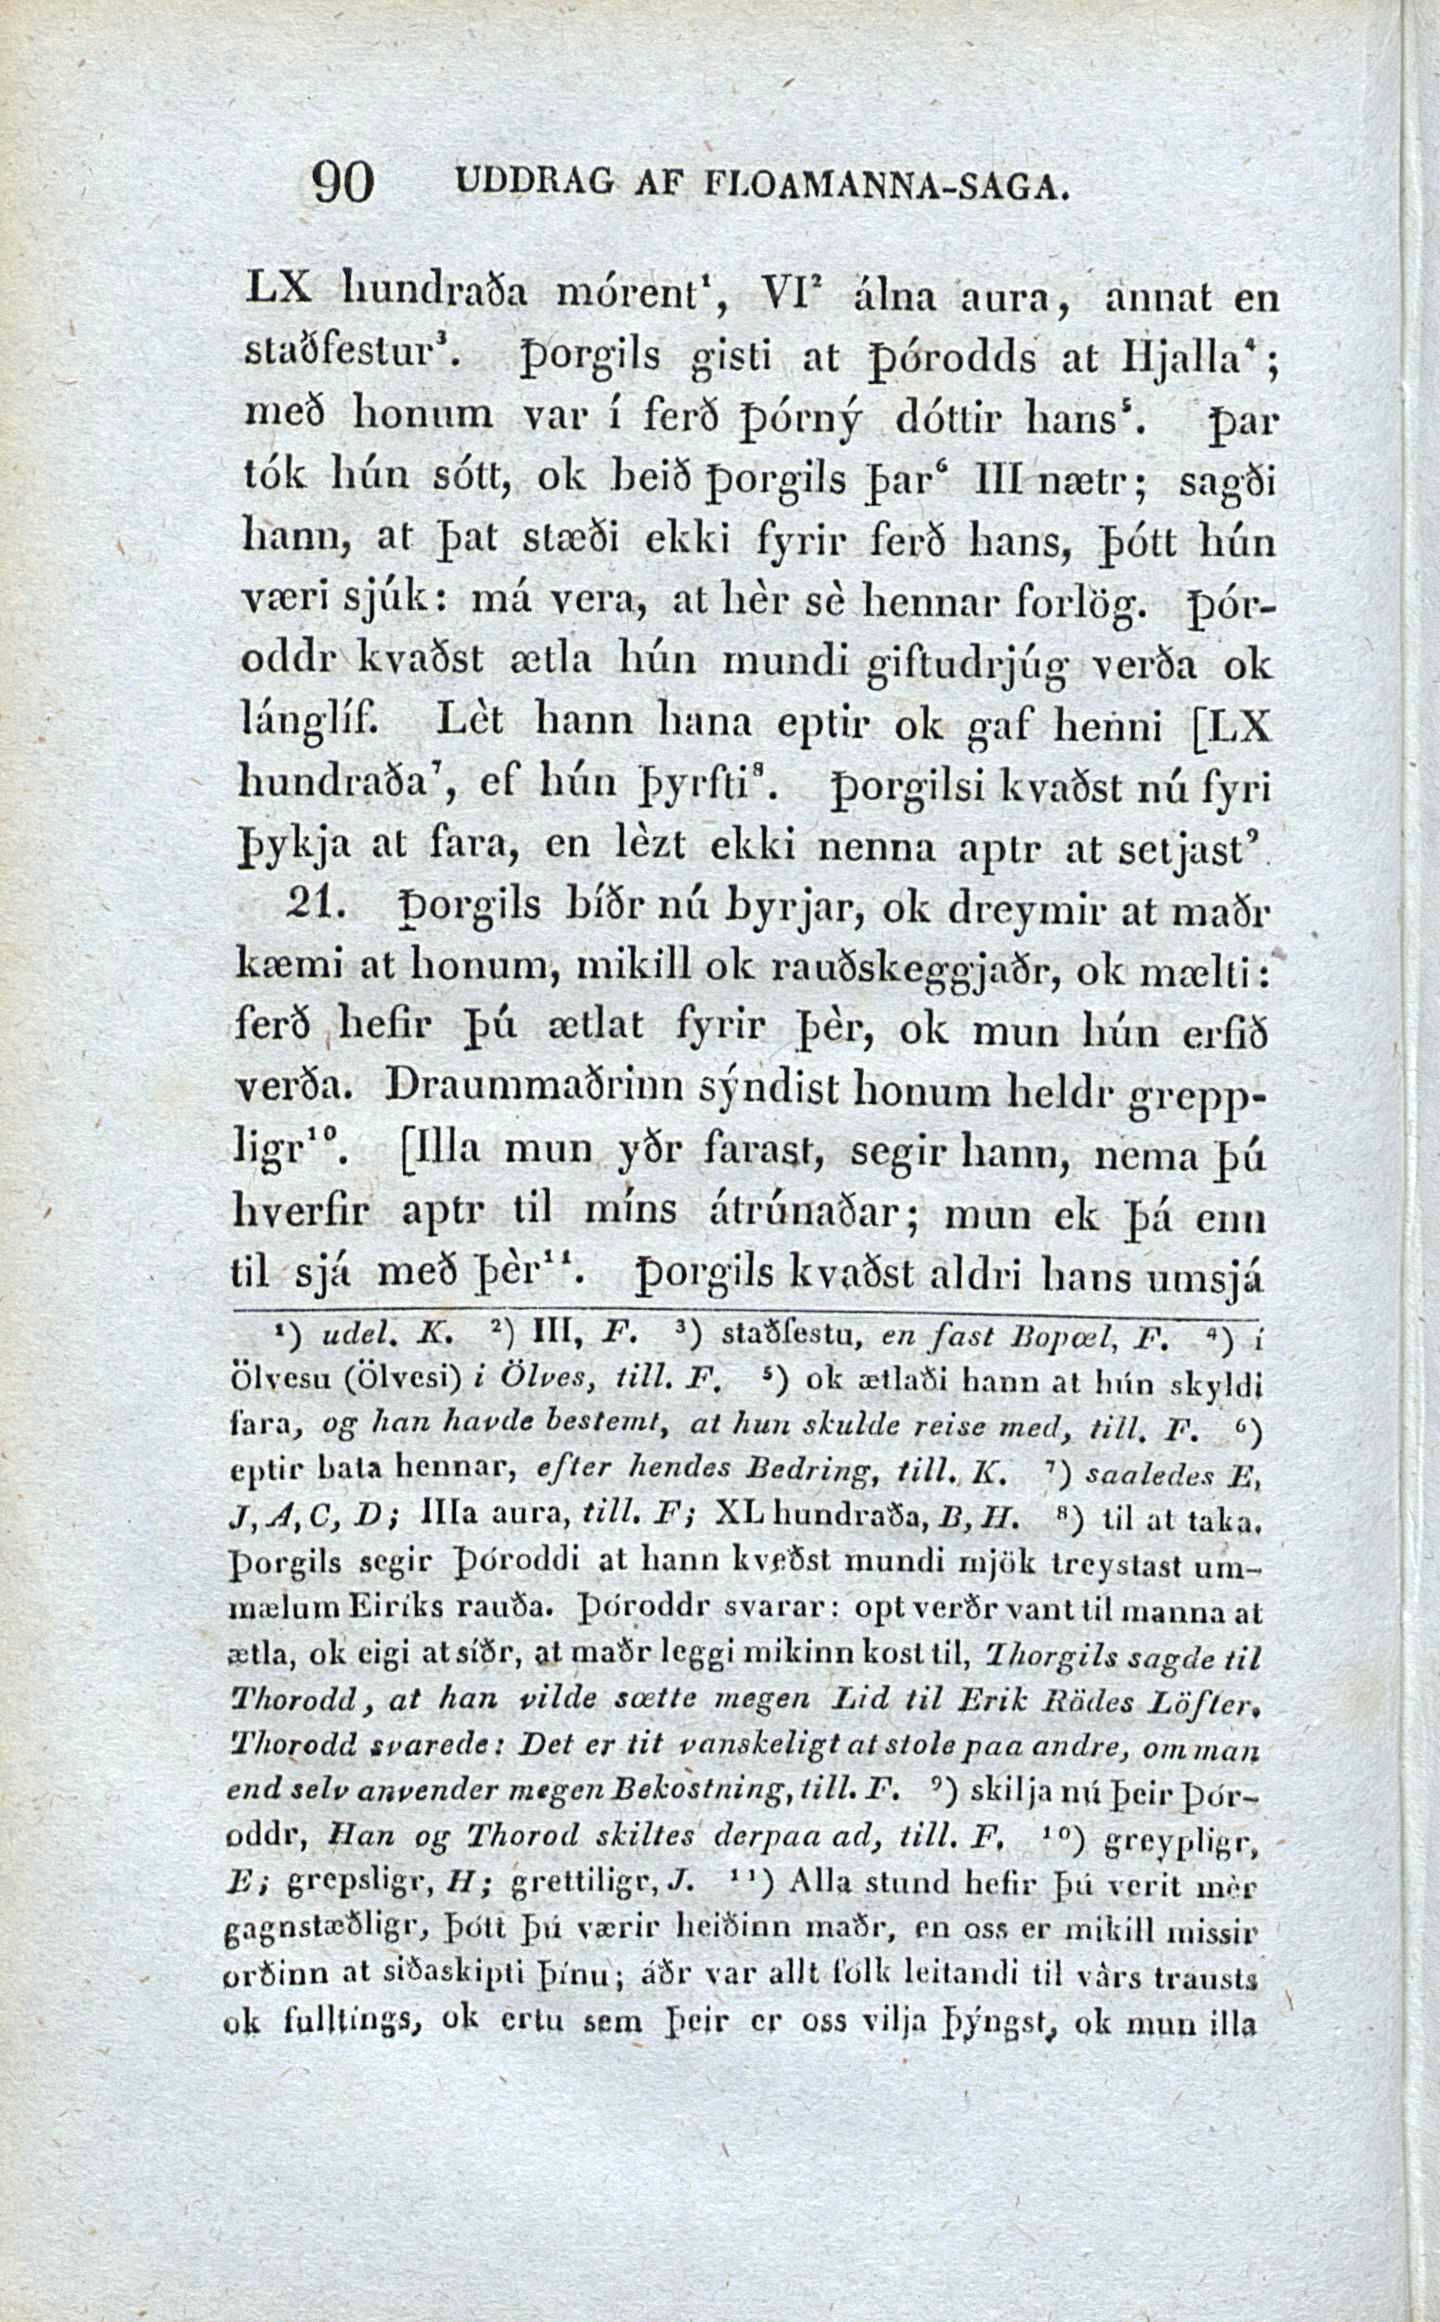 90 UDDRAG AF FLOAMANNA-SAGA.
LX hundraða mórent¹, VI² álna aura, annat en
staðfestur³. Þorgils gisti at Þórodds at Hjalla⁴;
með honum var í ferð Þórný dóttir hans⁵. Þar
tók hún sótt, ok beið Þorgils þar⁶ III nætr; sagði
hann, at þat stæði ekki fyrir ferð hans, þótt hún
væri sjúk: má vera, at hèr sè hennar forlög. Þór-
oddr kvaðst ætla hún mundi giftudrjúg verða ok
lánglíf. Lèt hann hana eptir ok gaf henni [LX
hundraða⁷, ef hún þyrfti⁸. Þorgilsi kvaðst nú fyri
þykja at fara, en lèzt ekki nenna aptr at setjast⁹.
21. Þorgils bíðr nú byrjar, ok dreymir at maðr
kæmi at honum, mikill ok rauðskeggjaðr, ok mælti:
ferð hefir þú ætlat fyrir þèr, ok mun hún erfið
verða. Draummaðrinn sýndist honum heldr grepp-
ligr¹⁰. [Illa mun yðr farast, segir hann, nema þú
hverfir aptr til míns átrúnaðar; mun ek þá enn
til sjá með þèr¹¹. Þorgils kvaðst aldri hans umsjá
¹) udel. K. ²) III, F. ³) staðfestu, en fast Bopæl, F. ⁴) í
Ölvesu (Ölvesi) i Ölves, till. F. ⁵) ok ætlaði hann at hún skyldi
fara, og han havde bestemt, at hun skulde reise med, till. F. ⁶)
eptir bata hennar, efter hendes Bedring, till. K. ⁷) saaledes E,
J, A, C, D; IIIa aura, till. F; XL hundraða, B, H. ⁸) til at taka.
Þorgils segir Þóroddi at hann kveðst mundi mjök treystast um-
mælum Eiríks rauða. Þóroddr svarar: opt verðr vant til manna at
ætla, ok eigi at síðr, at maðr leggi mikinn kost til, Thorgils sagde til
Thorodd, at han vilde sætte megen Lid til Erik Rödes Löfter.
Thorodd svarede: Det er tit vanskeligt at stole paa andre, om man
end selv anvender megen Bekostning, till. F. ⁹) skilja nú þeir Þór-
oddr, Han og Thorod skiltes derpaa ad, till. F. ¹⁰) greypligr,
E; grepsligr, H; grettiligr, J. ¹¹) Alla stund hefir þú verit mèr
gagnstæðligr, þótt þú værir heiðinn maðr, en oss er mikill missir
orðinn at siðaskipti þínu; áðr var allt fólk leitandi til várs trausts
ok fulltings, ok ertu sem þeir er oss vilja þýngst, ok mun illa